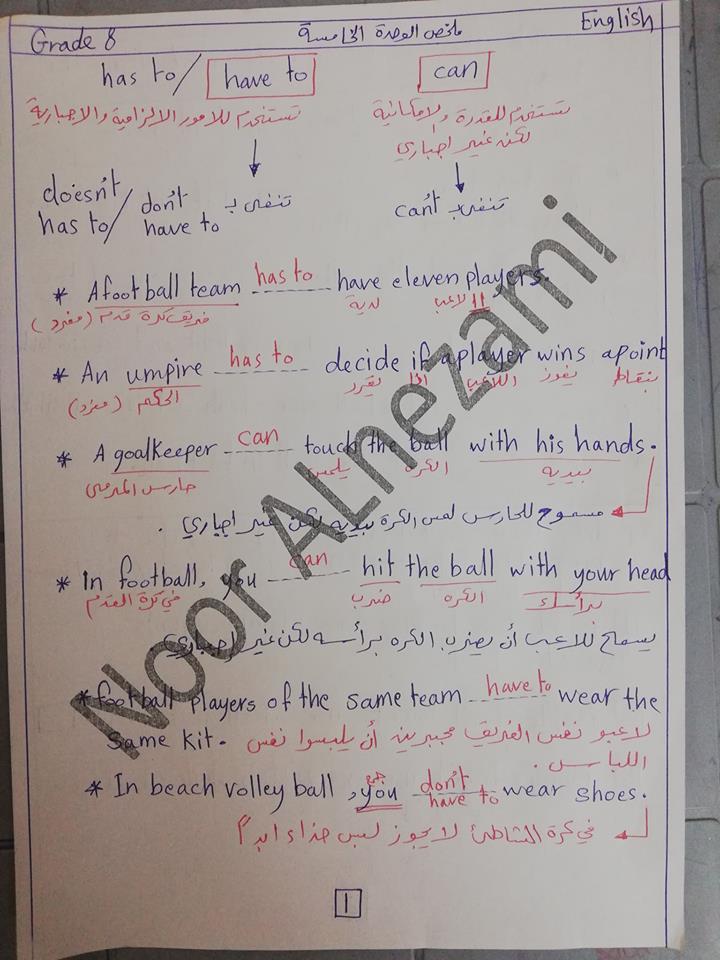 Grade 8 ملخص الوحدة الخامسة English
has to/ have to can
تستخدم للامور الالزامية والاجبارية تستخدم للقدرة والامكانية
لكن غير اجباري
doesn't has to/ don't have to تنفى بـ can't تنفى بـ
* A football team has to have eleven players.
فريق كرة قدم (مفرد) لدية لاعب 11
* An umpire has to decide if a player wins a point
الحكم (مفرد) يقرر اذا اللاعب يفوز بنقاط
* A goalkeeper can touch the ball with his hands.
حارس المرمى يلمس الكرة بيديه
مسموح للحارس لمس الكرة بيديه لكن غير اجباري .
* In football, you can hit the ball with your head
في كرة القدم ضرب الكره برأسك
يسمح للاعب أن يضرب الكره برأسه لكن غير إجباري
* football players of the same team have to wear the
same kit. لاعبو نفس الفريق مجبرين أن يلبسوا نفس
اللباس .
* In beach volley ball , you جمع don't have to wear shoes.
في كرة الشاطئ لا يجوز لبس حذاء ابدًا
1
Noor ALnezami